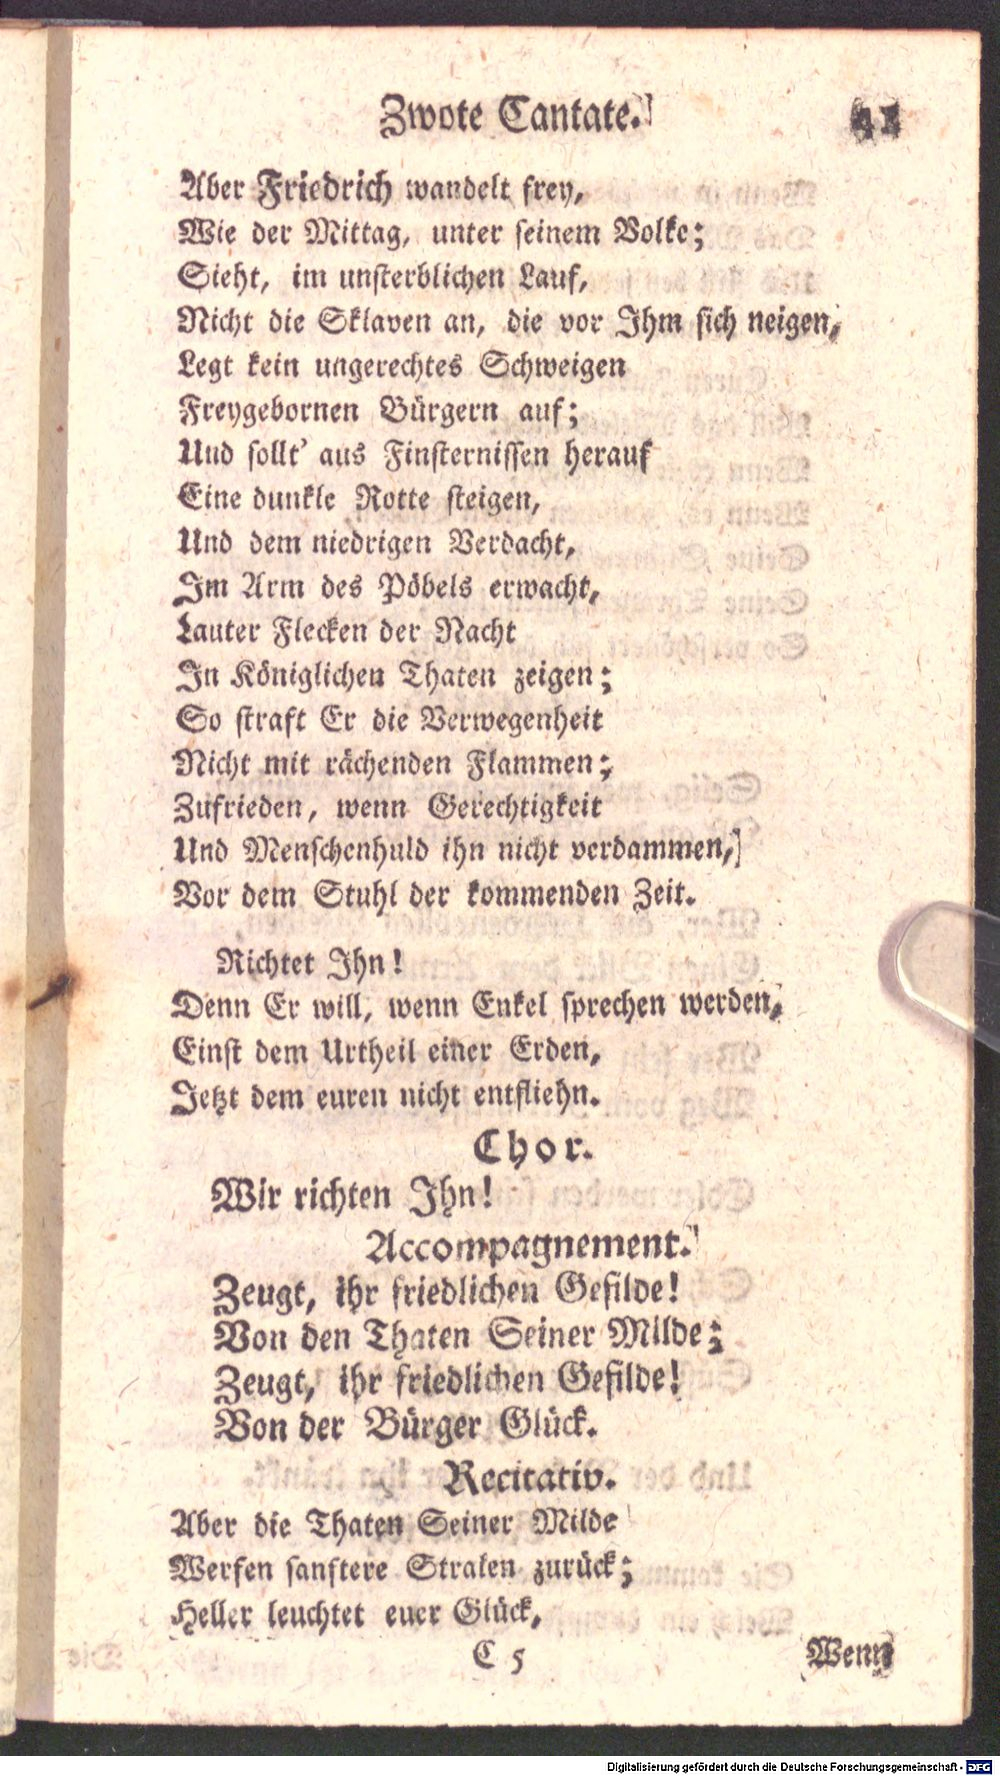 Zwote Cantate. 41
Aber Friedrich wandelt frey,
Wie der Mittag, unter seinem Volke;
Sieht, im unsterblichen Lauf,
Nicht die Sklaven an, die vor Ihm sich neigen,
Legt kein ungerechtes Schweigen
Freygebornen Bürgern auf;
Und sollt' aus Finsternissen herauf
Eine dunkle Rotte steigen,
Und dem niedrigen Verdacht,
Im Arm des Pöbels erwacht,
Lauter Flecken der Nacht
In Königlichen Thaten zeigen;
So straft Er die Verwegenheit
Nicht mit rächenden Flammen;
Zufrieden, wenn Gerechtigkeit
Und Menschenhuld ihn nicht verdammen,
Vor dem Stuhl der kommenden Zeit.
Richtet Ihn!
Denn Er will, wenn Enkel sprechen werden,
Einst dem Urtheil einer Erden,
Jetzt dem euren nicht entfliehn.
Chor.
Wir richten Ihn!
Accompagnement.
Zeugt, ihr friedlichen Gefilde!
Von den Thaten Seiner Milde;
Zeugt, ihr friedlichen Gefilde!
Von der Bürger Glück.
Recitativ.
Aber die Thaten Seiner Milde
Werfen sanftere Stralen zurück;
Heller leuchtet euer Glück,
C 5 Wenn
Digitalisierung gefördert durch die Deutsche Forschungsgemeinschaft - DFG